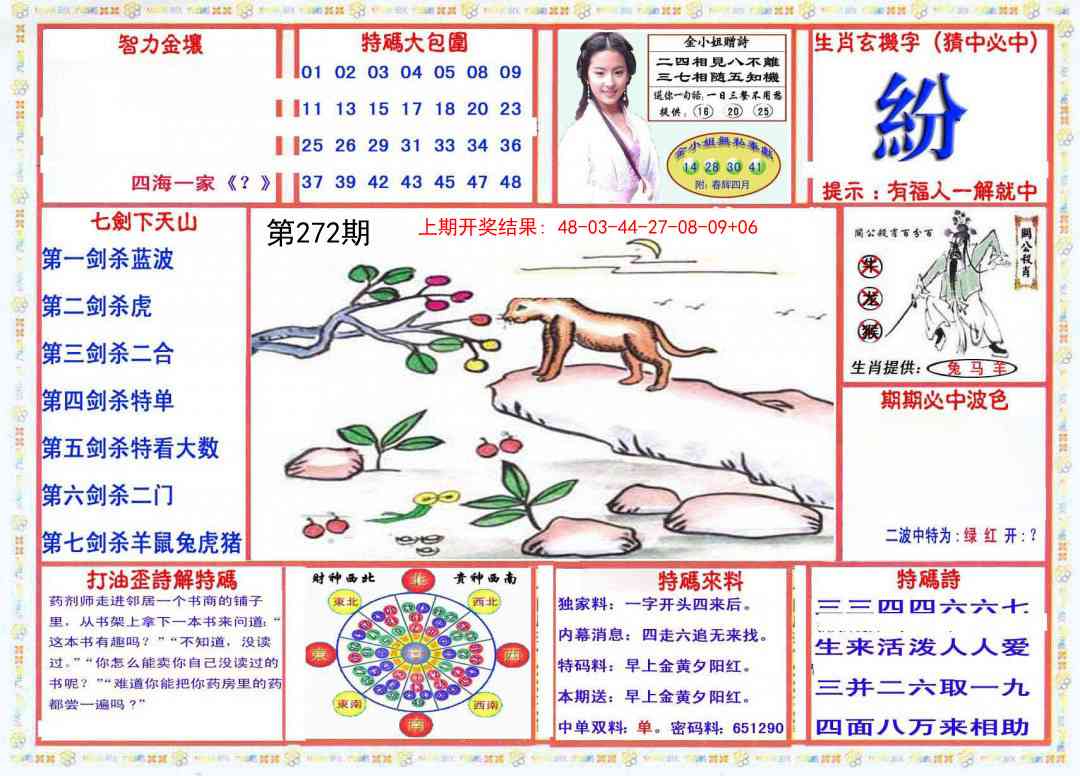 智力金壤
四海一家《？》
特碼大包圍
01 02 03 04 05 08 09
11 13 15 17 18 20 23
25 26 29 31 33 34 36
37 39 42 43 45 47 48
金小姐贈詩
二四相見八不離
三七相隨五知機
送你一句話,一日三餐不用愁
提供: 16 20 25
金小姐無私奉獻
14 28 30 41
附: 春辉四月
生肖玄機字（猜中必中）
紛
提示：有福人一解就中
七劍下天山
第一剑杀蓝波
第二剑杀虎
第三剑杀二合
第四剑杀特单
第五剑杀特看大数
第六剑杀二门
第七剑杀羊鼠兔虎猪
第272期
上期开奖结果: 48-03-44-27-08-09+06
關公殺肖百分百
關公殺肖
牛
龙
猴
生肖提供: 兔 马 羊
期期必中波色
二波中特为:绿 红 开:?
打油歪詩解特碼
药剂师走进邻居一个书商的铺子
里，从书架上拿下一本书来问道：“
这本书有趣吗？”“不知道，没读
过。”“你怎么能卖你自己没读过的
书呢？”“难道你能把你药房里的药
都尝一遍吗？”
財神西北 貴神西南
北
東北 西北
東 西
東南 西南
南
特碼來料
独家料: 一字开头四来后。
内幕消息: 四走六追无来找。
特码料: 早上金黄夕阳红。
本期送: 早上金黄夕阳红。
中单双料: 单。密码料: 651290
特碼詩
三三四四六六七
生来活泼人人爱
三并二六取一九
四面八万来相助